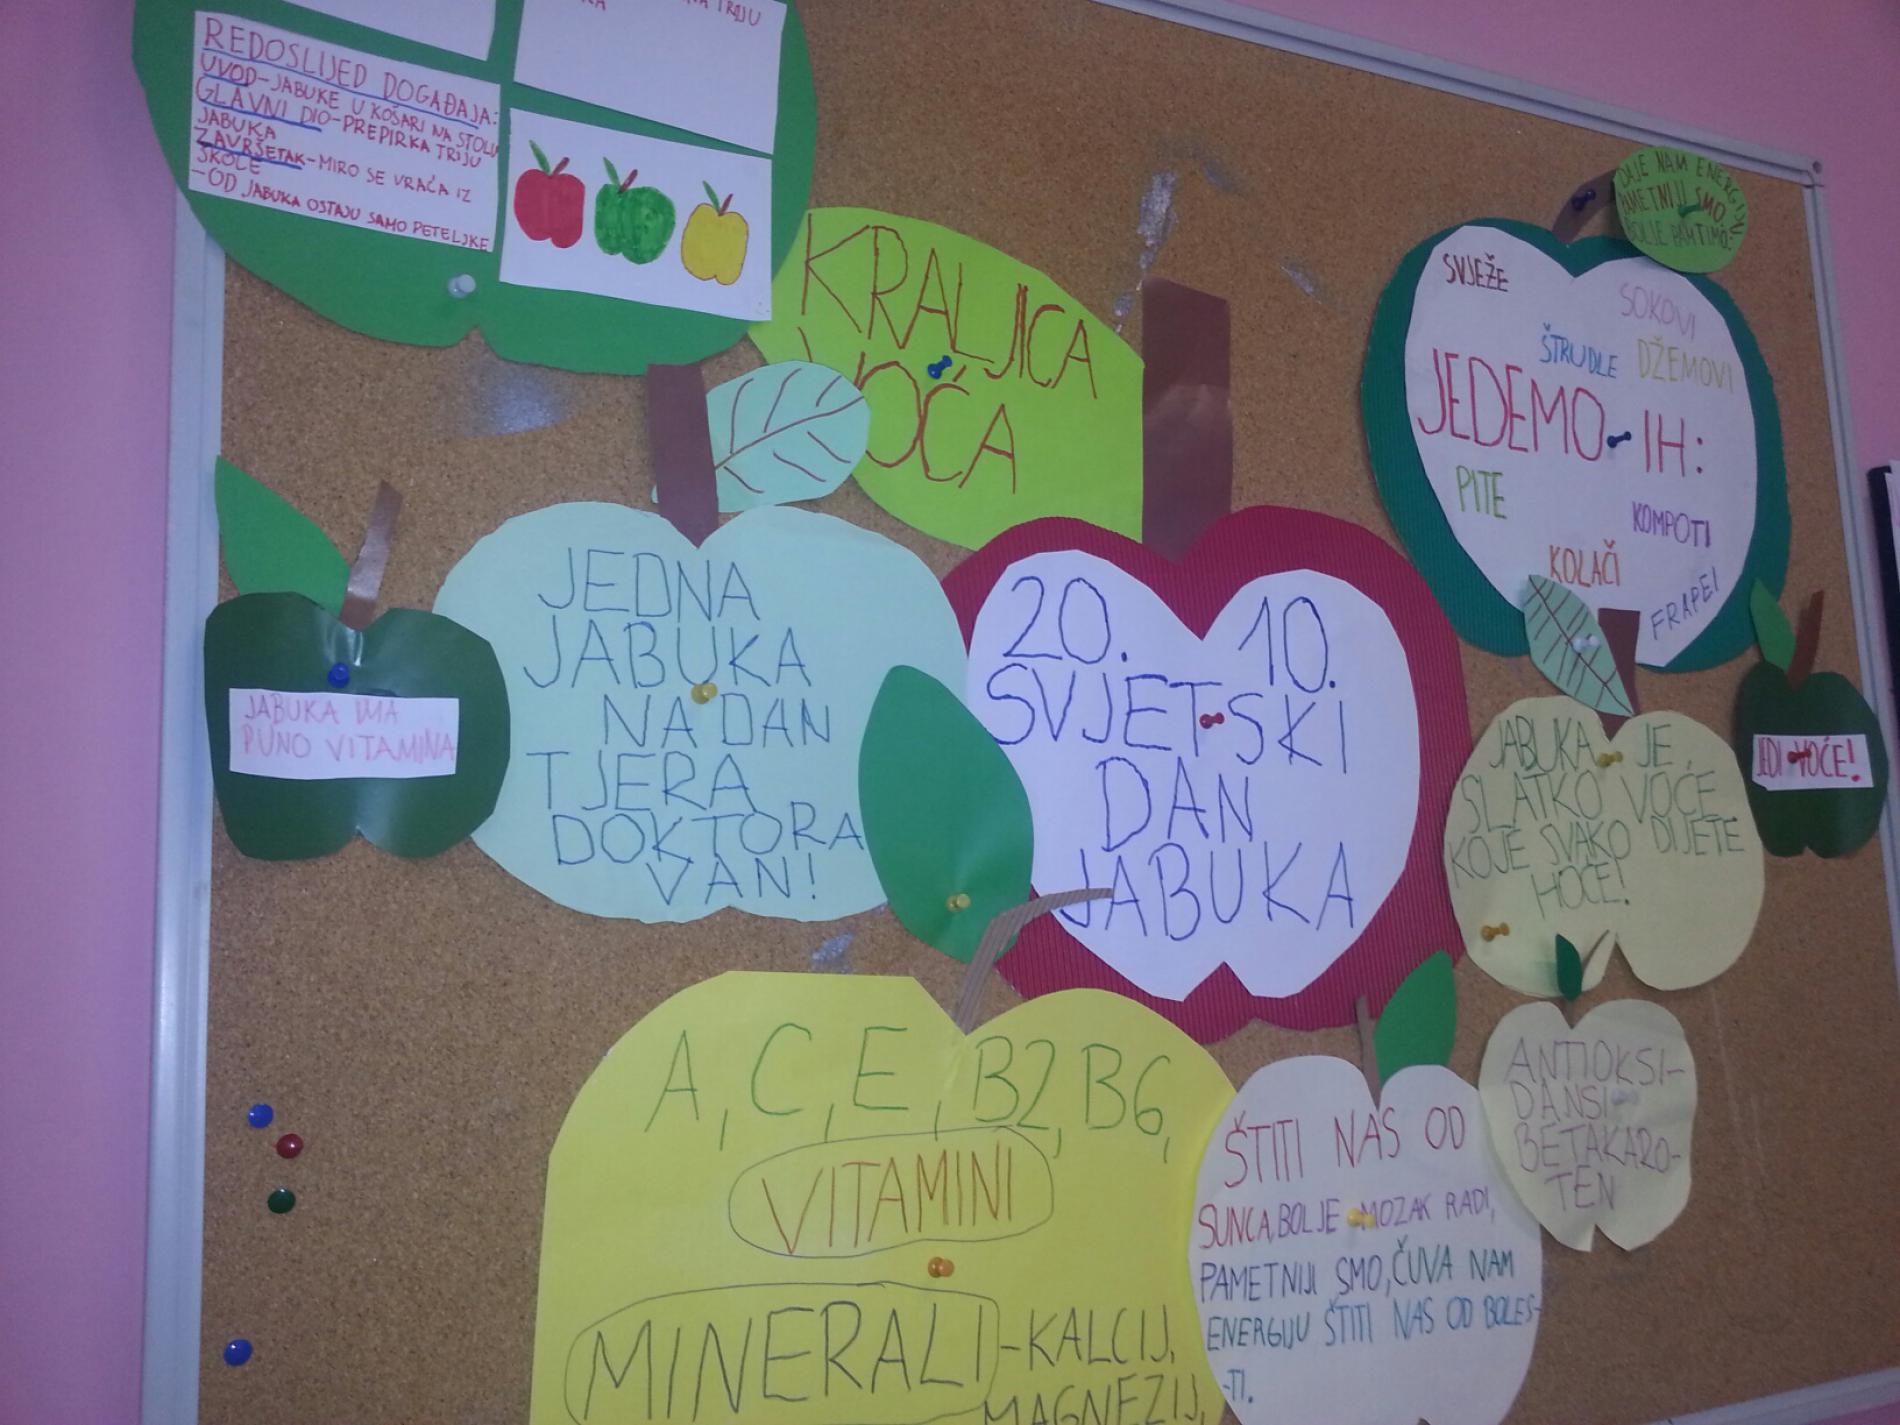 TRIJU
REDOSLIJED DOGAĐAJA:
UVOD-JABUKE U KOŠARI NA STOLU
GLAVNI DIO-PREPIRKA TRIJU
JABUKA
ZAVRŠETAK-MIRO SE VRAĆA IZ
ŠKOLE
-OD JABUKA OSTAJU SAMO PETELJKE
KRALJICA
VOĆA
DAJE NAM ENERGIJU
PAMETNIJI SMO
BOLJE PAMTIMO.
SVJEŽE
SOKOVI
ŠTRUDLE
DŽEMOVI
JEDEMO IH:
PITE
KOMPOTI
KOLAČI
FRAPEI
JABUKA IMA
PUNO VITAMINA
JEDNA
JABUKA
NA DAN
TJERA
DOKTORA
VAN!
20. 10.
SVJETSKI
DAN
JABUKA
JABUKA JE
SLATKO VOĆE
KOJE SVAKO DIJETE
HOĆE!
JEDI VOĆE!
A, C, E, B2, B6,
VITAMINI
MINERALI-KALCIJ,
MAGNEZIJ,
ŠTITI NAS OD
SUNCA, BOLJE MOZAK RADI,
PAMETNIJI SMO, ČUVA NAM
ENERGIJU ŠTITI NAS OD BOLES-
-TI.
ANTIOKSI-
DANSI-
BETAKARO-
TEN